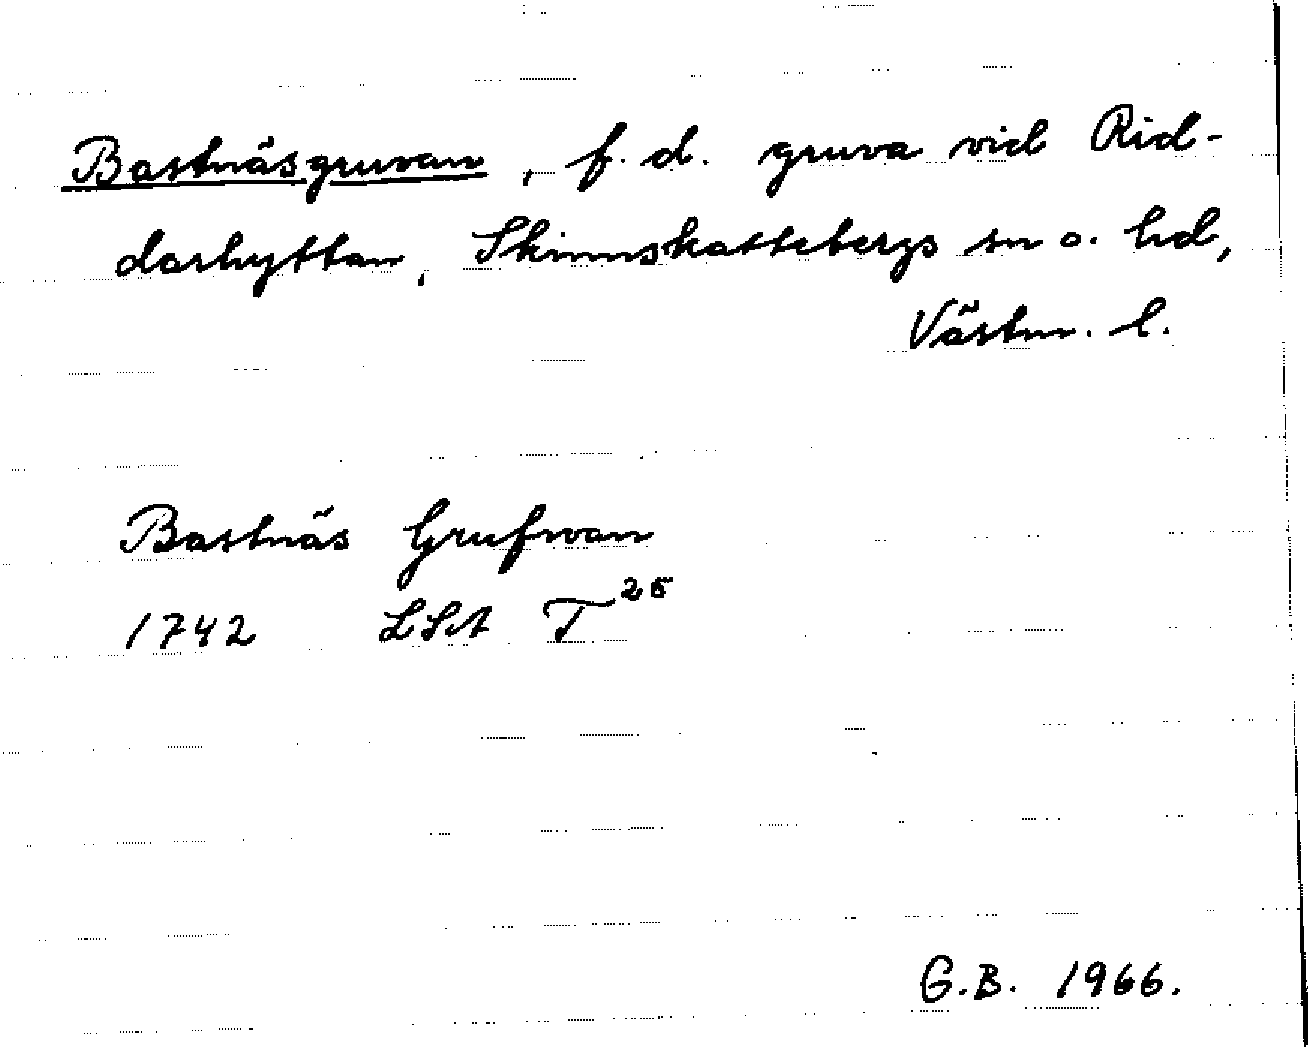 Bastnäsgruvan, f.d. gruva vid Rid-
darhyttan, Skinnskattebergs sn o. hd,
Västm. l.
Bastnäs Grufwan
1742 LSA T 25
G.B. 1966.